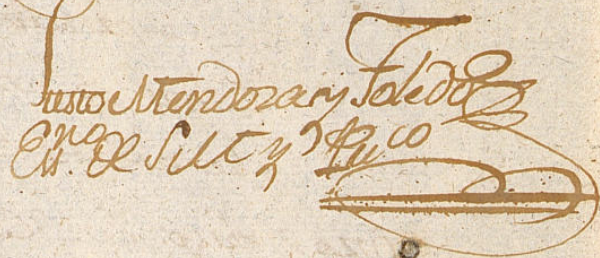 Justo Mendoza y Toledo
Essno. de S.M. y Puco